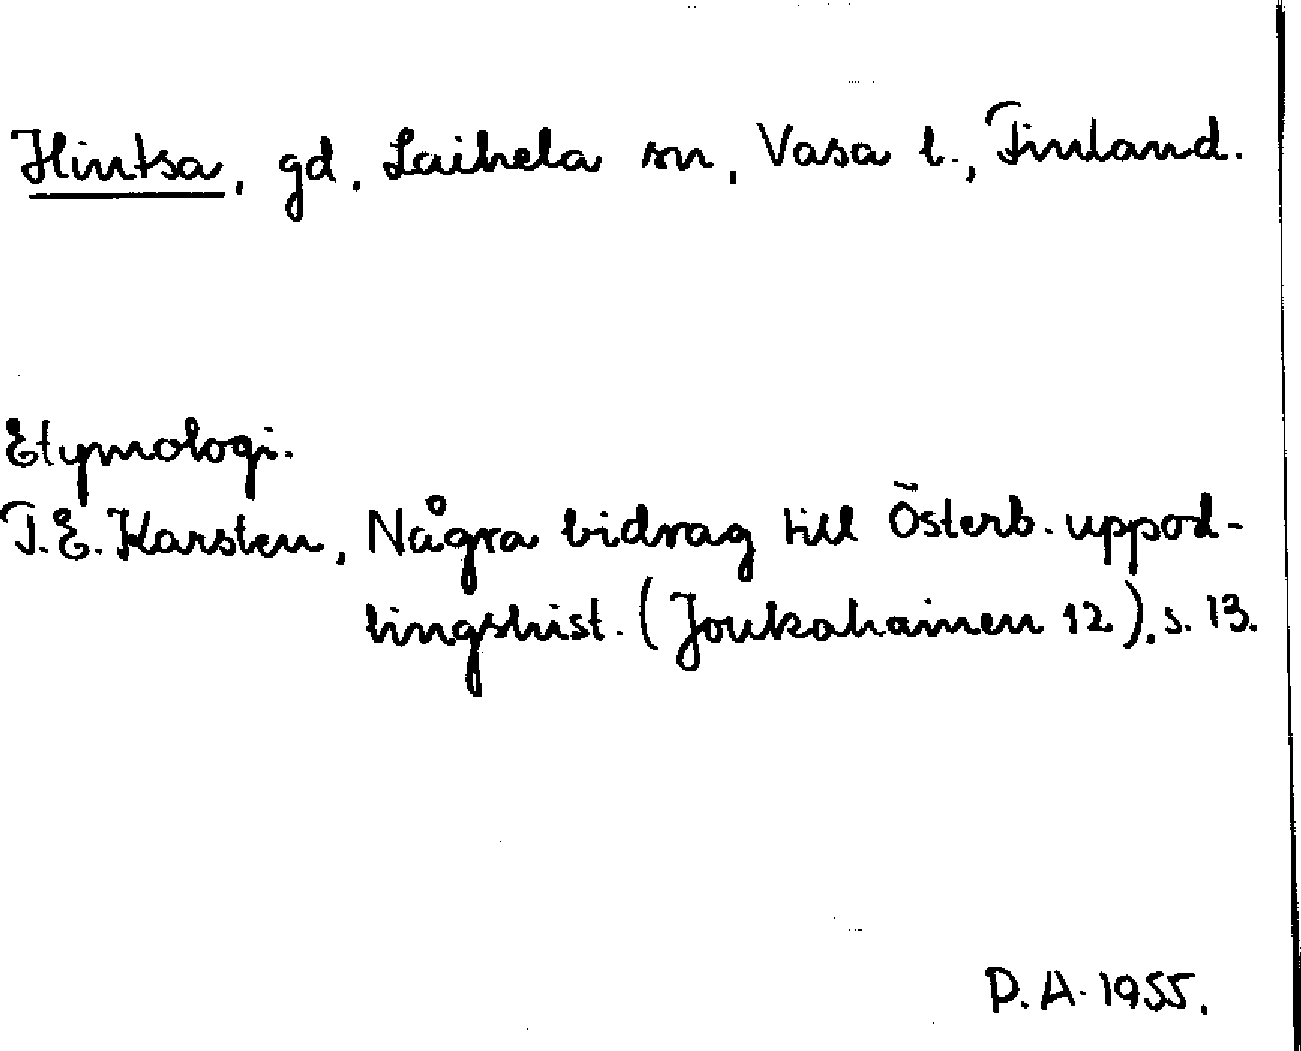 Hintsa, gd, Laihela sn, Vasa l., Finland.
Etymologi.
T.E. Karsten, Några bidrag till Österb. uppod-
lingshist. (Joukahainen 12), s. 13.
P.A. 1955.